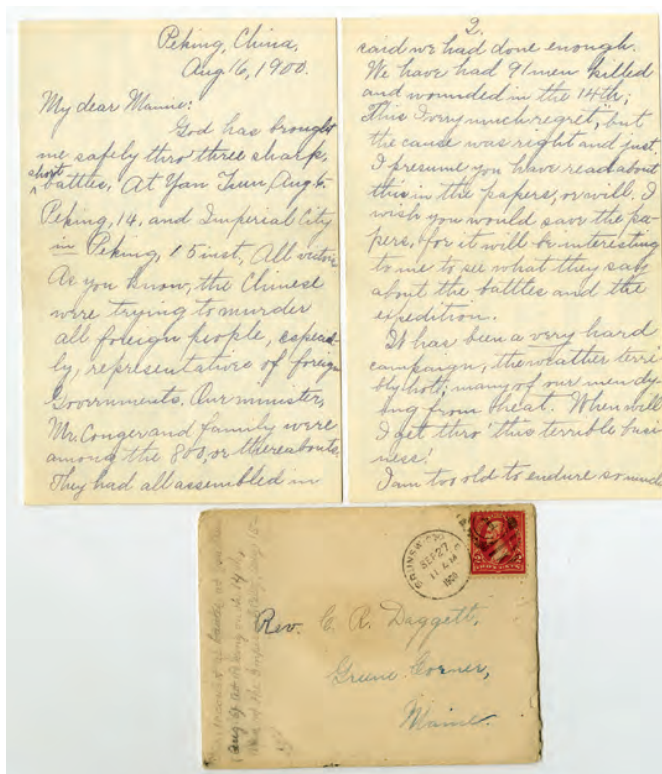 Peking, China,
Aug 16, 1900.
My dear Mamie:
God has brought
me safely thro' three sharp,
short
battles. At Yan Tsun, Aug. 6.
Peking, 14, and Imperial City
in Peking, 15 inst, All
As you know, the Chinese
were trying to murder
all foreign people, especial-
ly, representative of foreign
Governments. Our minister,
Mr. Conger and family were
among the 800, or thereabouts.
They had all assembled in
2.
said we had done enough.
We have had 91 men killed
and wounded in the 14th;
This I very much regret, but
the cause was right and just.
I presume you have read about
this in the papers, or will. I
wish you would save the pa-
pers, for it will be interesting
to me to see what they say
about the battles and the
expedition.
It has been a very hard
campaign, the weather terri
bly hot; many of our men dy-
ing from heat. When will
I get thro' this terrible busi
ness!
I am too old to endure so much
BRUNSWICK
SEP 27
11 AM
1900
Rev. C. R. Daggett,
Greene Corner,
Maine.